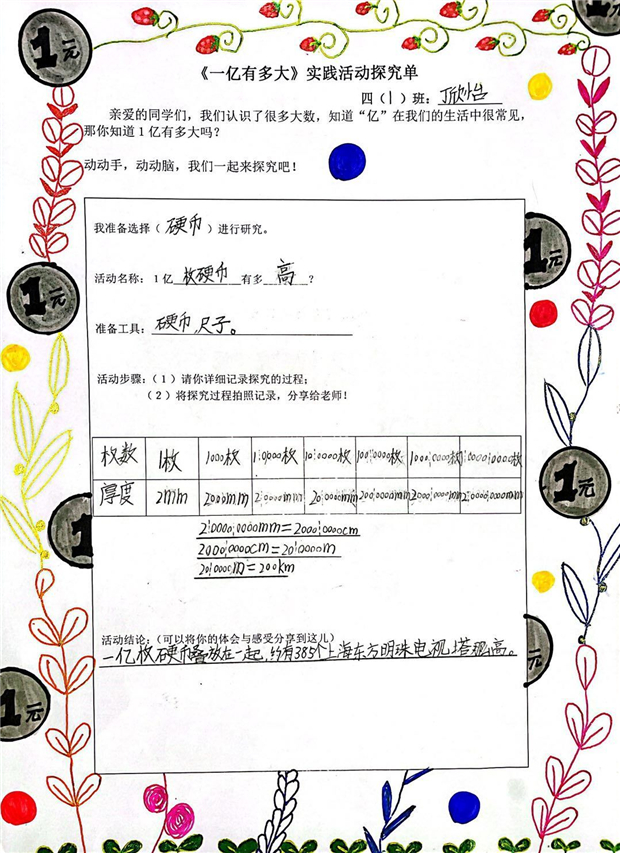 1元
1元
《一亿有多大》实践活动探究单
四（1）班：丁欣怡
亲爱的同学们，我们认识了很多大数，知道“亿”在我们的生活中很常见，
那你知道1亿有多大吗？
动动手，动动脑，我们一起来探究吧！
我准备选择（硬币）进行研究。
1元
活动名称：1亿枚硬币有多高？
1元
准备工具：硬币，尺子。
活动步骤：（1）请你详细记录探究的过程；
（2）将探究过程拍照记录，分享给老师！
枚数 1枚 1000枚 1┊0000枚 10┊0000枚 100┊0000枚 1000┊0000枚 1┊0000┊0000枚
厚度 2mm 2000mm 2┊0000mm 20┊0000mm 200┊0000mm 2000┊0000mm 2┊0000┊0000mm
1元
1
2┊0000┊0000mm=2000┊0000cm
2000┊0000cm=20┊0000m
20┊0000m=200km
活动结论：（可以将你的体会与感受分享到这儿）
一亿枚硬币叠放在一起，约有385个上海东方明珠电视塔那高。
元
1元